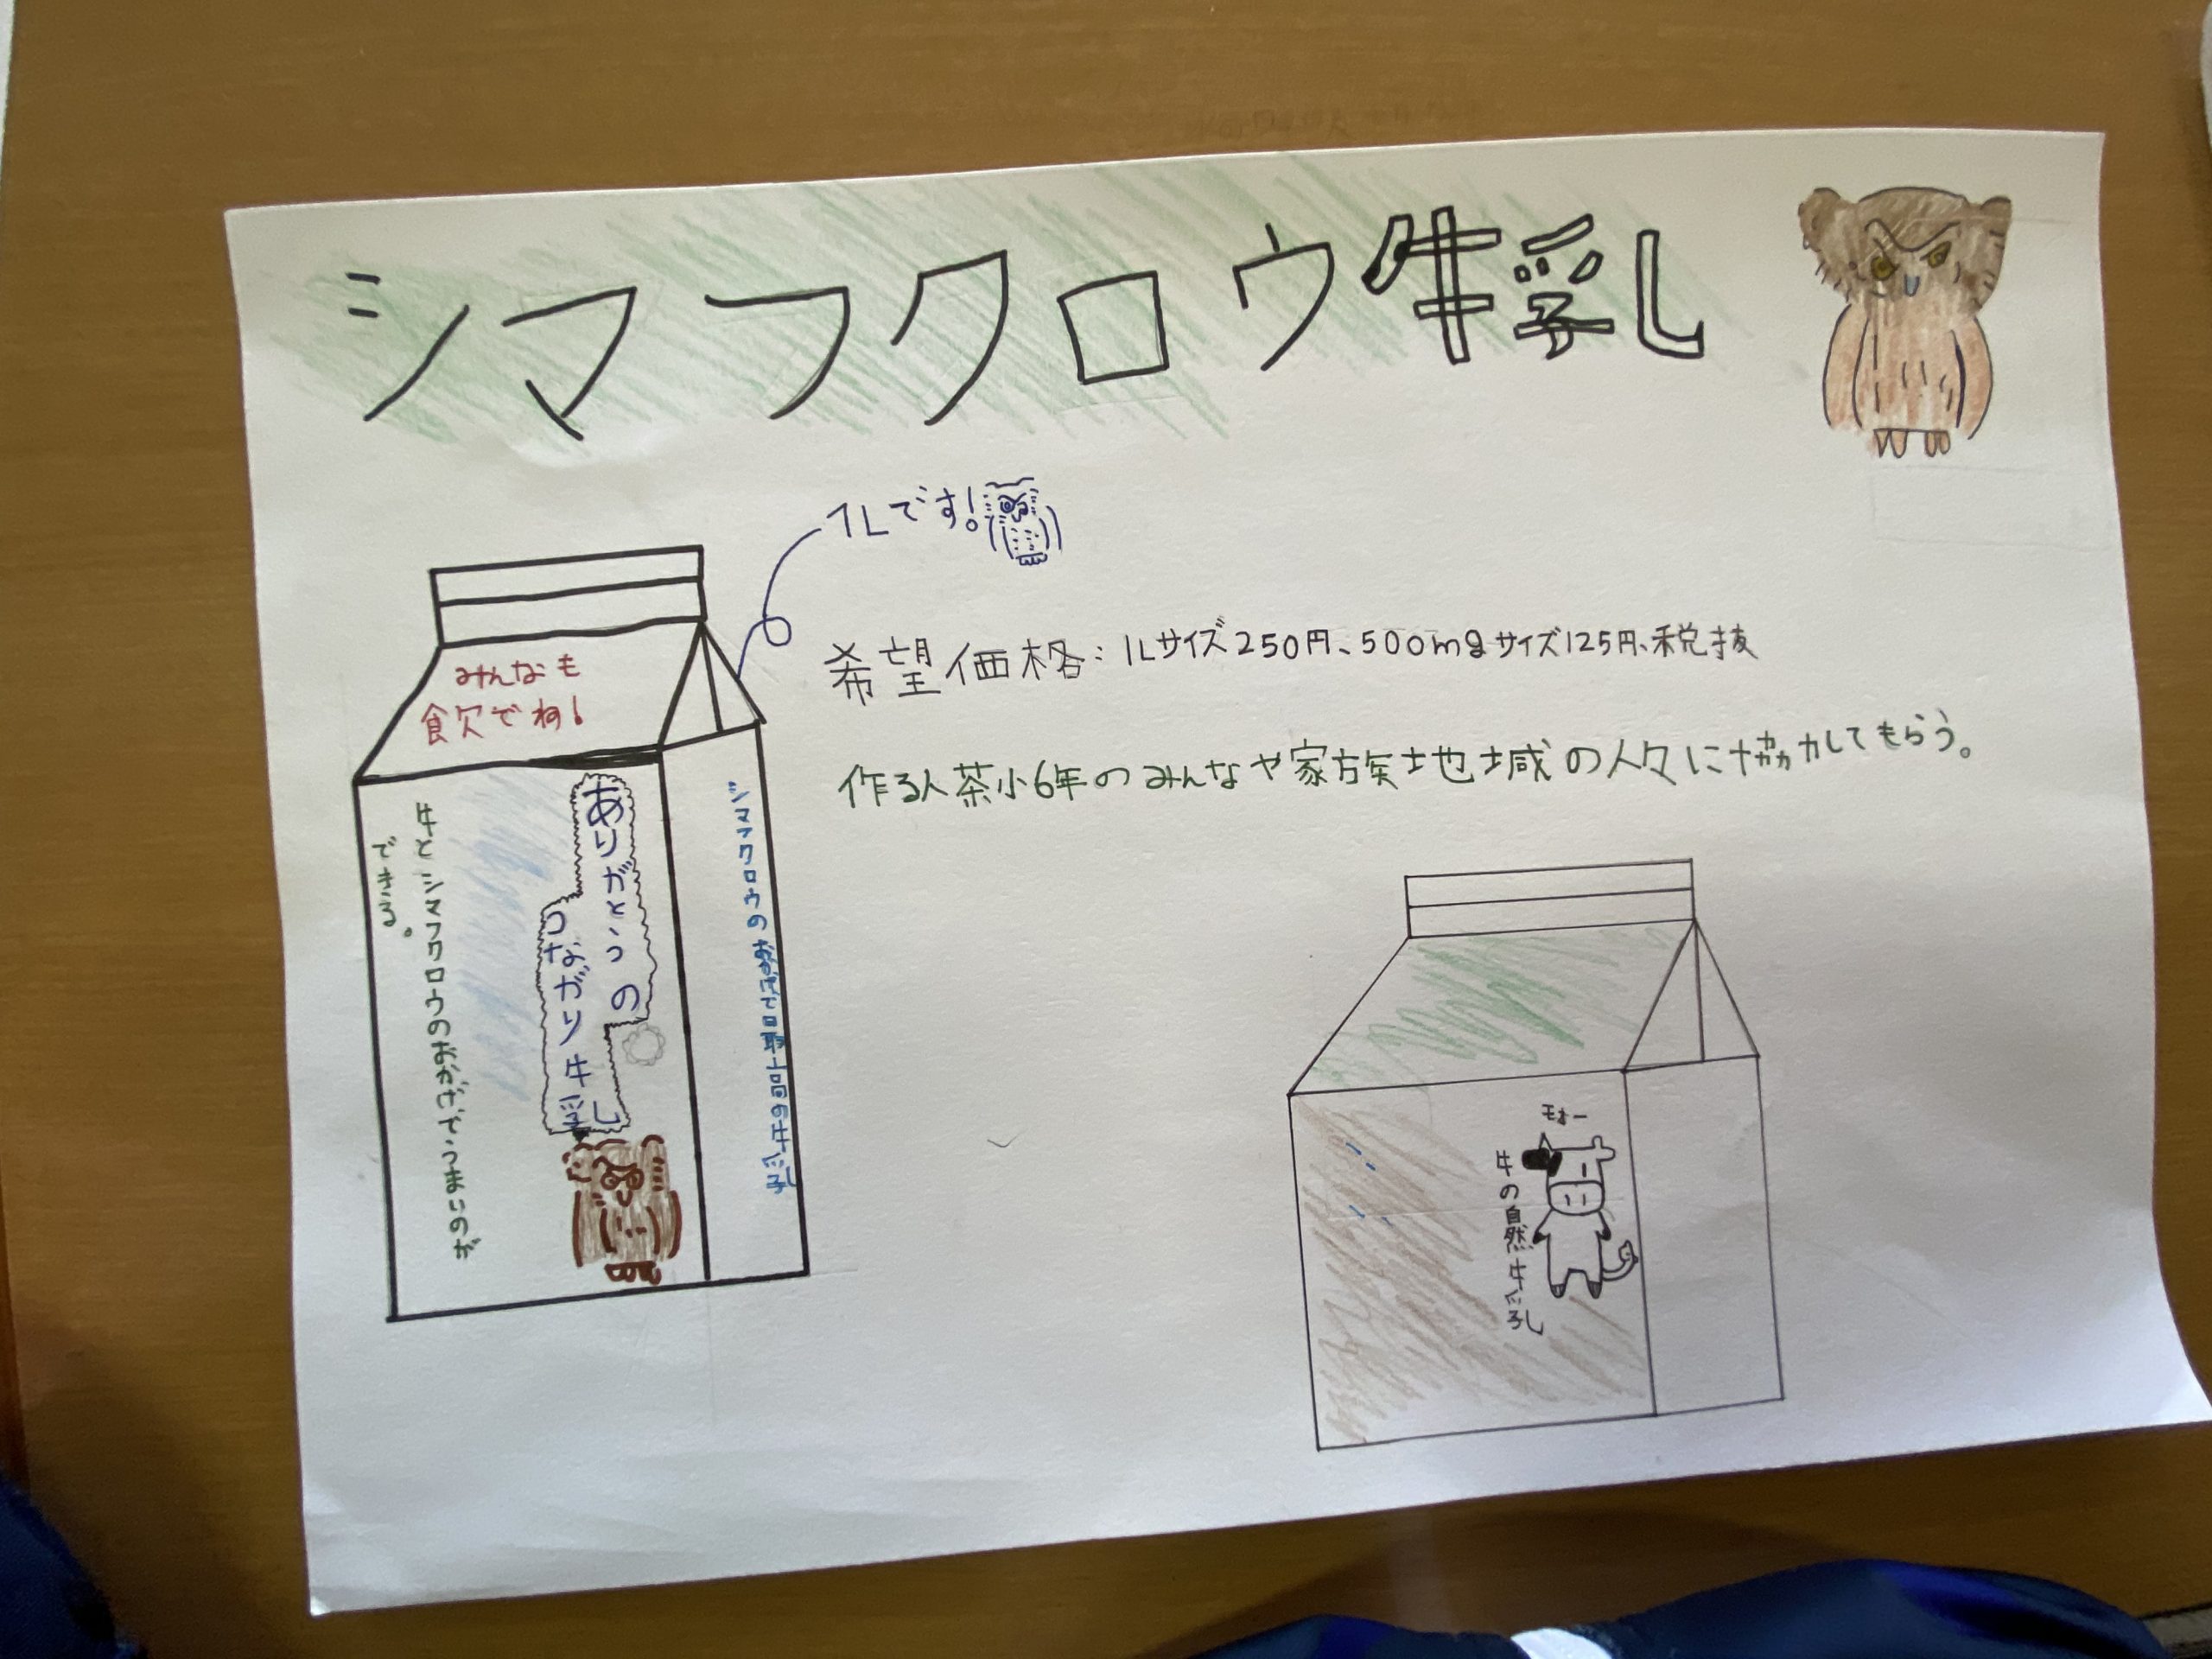 シマフクロウ牛乳
1Lです!
希望価格:1Lサイズ250円、500mgサイズ125円、税抜
作る人茶小6年のみんなや家族地域の人々に協力してもらう。
みんなも
飲んでね!
ありがとうの
つながり牛乳
牛とシマフクロウのおかげでうまいのが
できる。
シマフクロウのおかげで最上高の牛乳
モォー
牛の自然牛乳